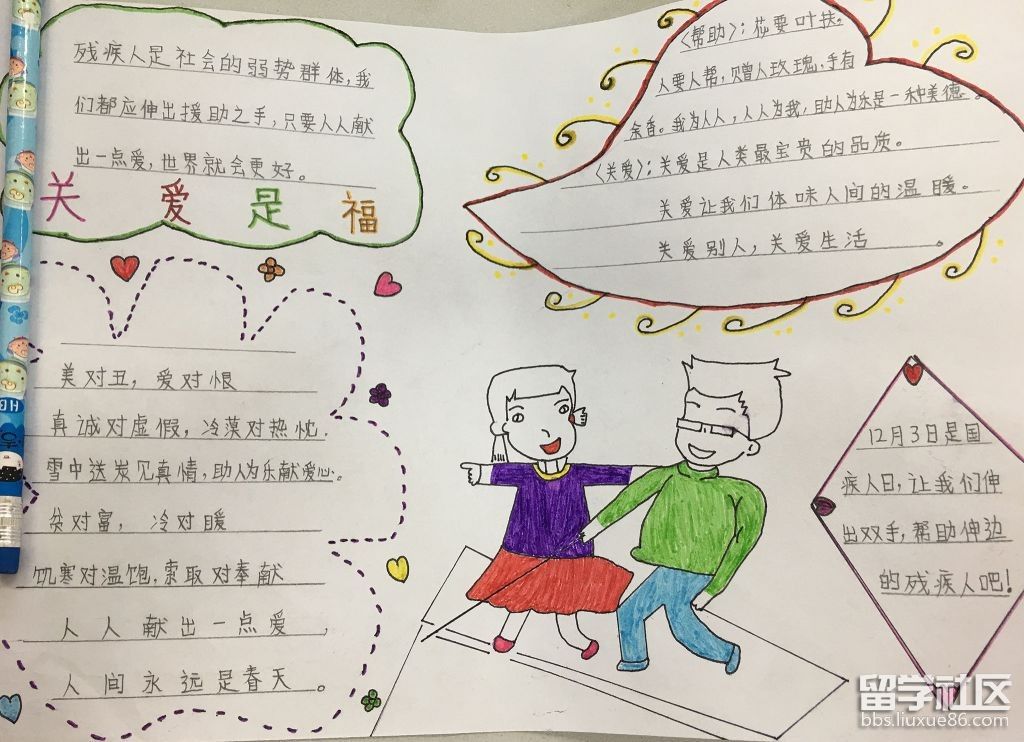 残疾人是社会的弱势群体，我
们都应伸出援助之手，只要人人献
出一点爱，世界就会更好。
关爱是福
《帮助》：花要叶扶。
人要人帮，赠人玫瑰，手有
余香。我为人人，人人为我，助人为乐是一种美德。
《关爱》：关爱是人类最宝贵的品质。
关爱让我们体味人间的温暖。
关爱别人，关爱生活。
美对丑，爱对恨
真诚对虚假，冷漠对热忱．
雪中送炭见真情，助人为乐献爱心．
贫对富，冷对暖
饥寒对温饱，索取对奉献
人人献出一点爱，
人间永远是春天。
12月3日是国
疾人日，让我们伸
出双手，帮助伸边
的残疾人吧！
HB
留学社区
bbs.liuxue86.com